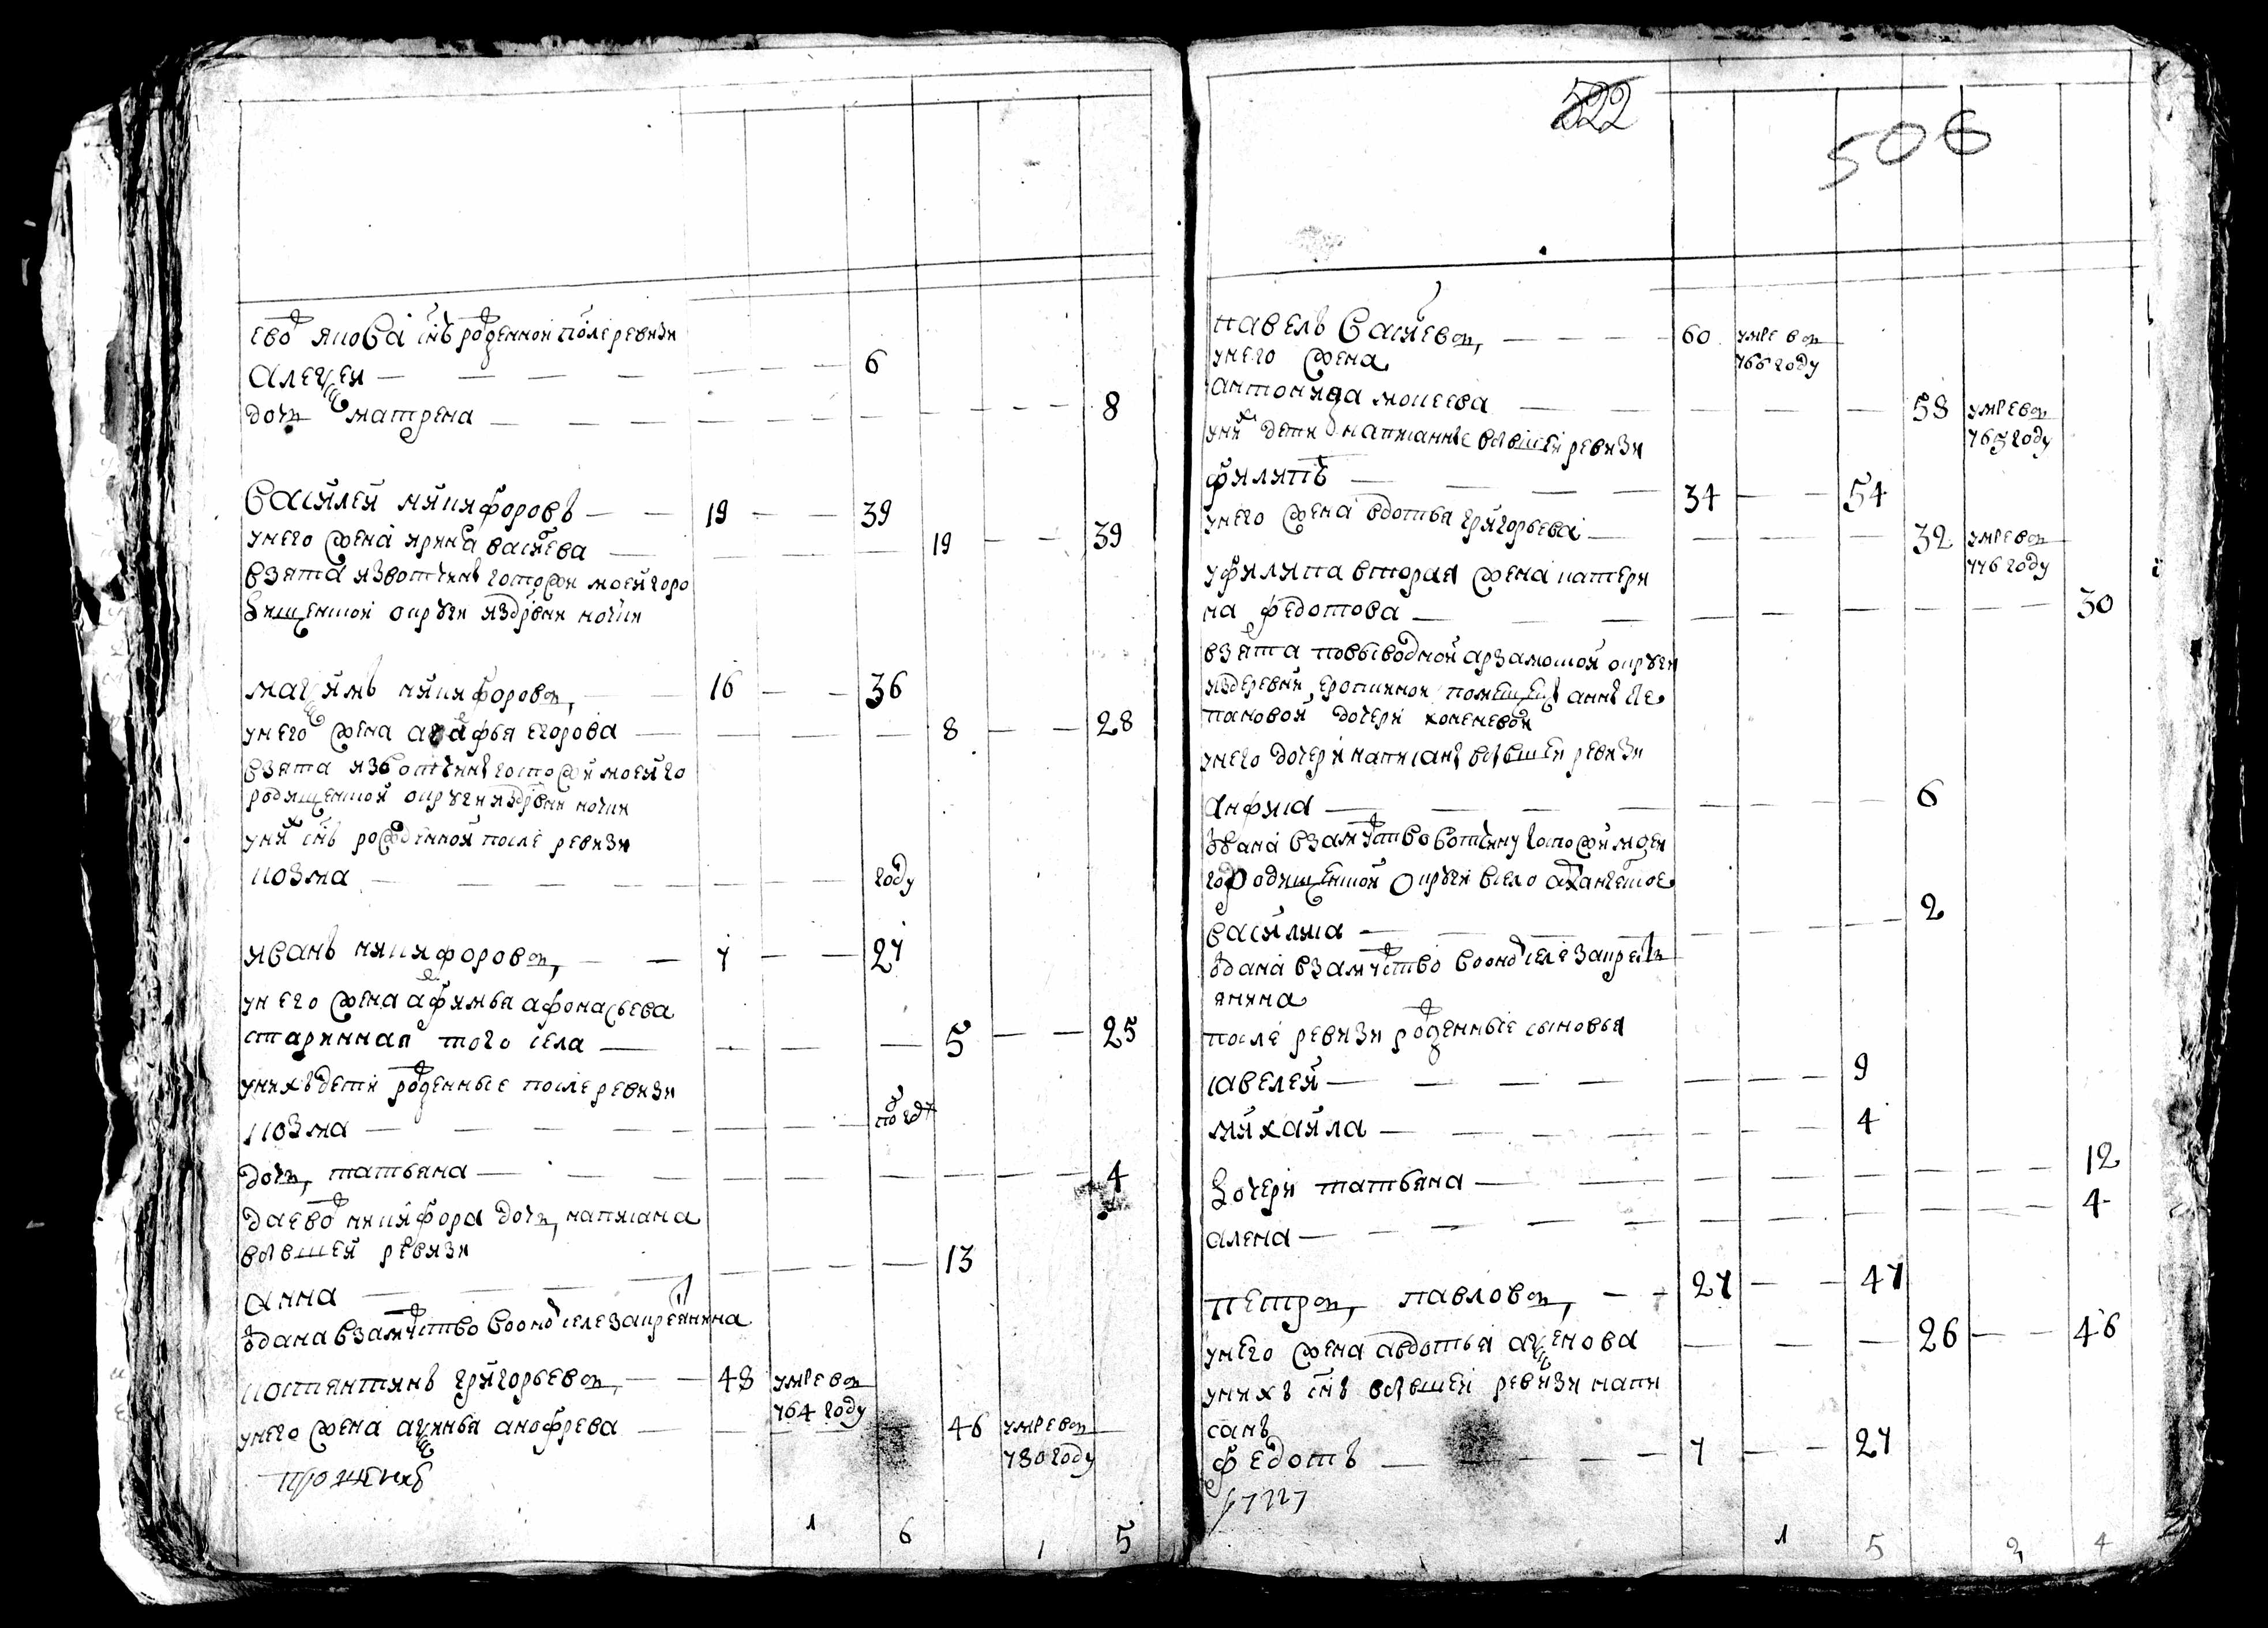 ево якова снъ рожденной после ревизи
алексеи — 6
дочь матрена — 8
василеи никифоровъ — 19 — 39
унего жена ирина васильева — 19 — 39
взята извотчины госпожи моей горо
дищенской округи издревни ночки
максимъ никифоровъ — 16 — 36
унего жена агафья егорова — 8 — 28
взята извотчины госпожи моей го
родищенской округи издревни ночки
уних снъ рожденной после ревизи
козма — году
иванъ никифоровъ — 7 — 27
унего жена афимья афонасьева
старинная того села — 5 — 25
унихъ дети рожденные после ревизи
козма — полгоду
дочь татьяна — 4
даево никифора дочь написана
вбывшей ревизи
анна — 13
здана взамужство вооном селе закрестьянина
костянтинъ григорьевъ — 48 умре въ
764 году
унего жена аксинья анофрева — 46 умре въ
780 году
1 6 1 5
522
506
павелъ васильевъ — 60 умре въ
766 году
унего жена
антонида моисеева — 58 умре въ
765 году
уних дети написанные вбывшей ревизи
филипъ — 34 — 54
унего жена вдотья григорьева — 32 умре въ
776 году
уфилипа вторая жена катери
на федотова — 30
взята повыводной арзамоской округи
издеревни еропкиной помещицы анны сте
пановой дочери
унего дочери написаны вбывшей ревизи
анфиса — 6
здана взамужство вотчину госпожи моей
городищенской округи всело архангелское
василиса — 2
здана взамужство вооном селе закресть
янина
после ревизи рожденные сыновья
савелей — 9
михайла — 4
дочери татьяна — 12
алена — 4
петръ павловъ — 27 — 47
унего жена авдотья аксенова — 26 — 46
унихъ снъ вбывшей ревизи напи
санъ
федотъ — 7 — 27
1 5 2 4